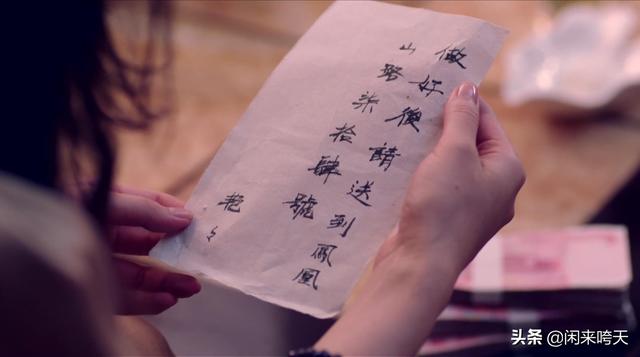 做好後請送到鳳凰
山路柒拾肆號
艷々
头条 @闲来垮天